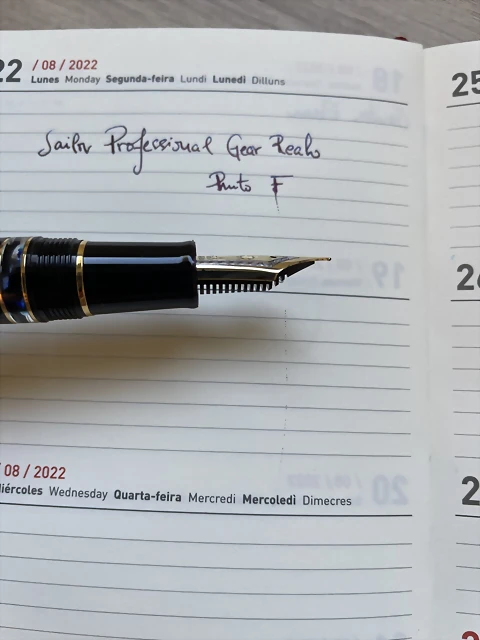 22 / 08 / 2022
Lunes Monday Segunda-feira Lundi Lunedì Dilluns
Sailor Professional Gear Realo
Punto F
/ 08 / 2022
Miércoles Wednesday Quarta-feira Mercredi Mercoledì Dimecres
25